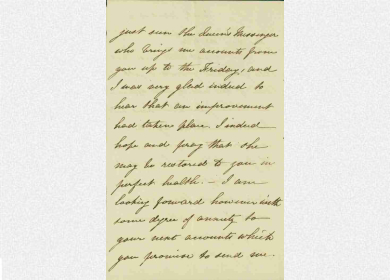 just seen the Queen's Messenger
who brings me accounts from
you up to the Friday, and
I was very glad indeed to
hear that an improvement
had taken place. I indeed
hope and pray that she
may be restored to you in
perfect health. — I am
looking forward however with
some degree of anxiety to
your next accounts which
you promise to send me